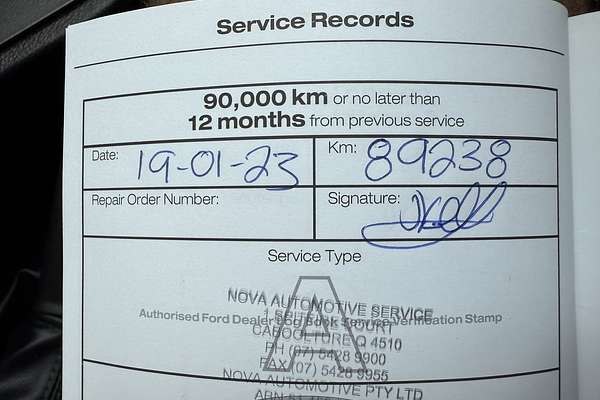 Service Records
90,000 km or no later than
12 months from previous service
Date: 19-01-23
Km: 89238
Repair Order Number:
Signature:
Service Type
A
NOVA AUTOMOTIVE SERVICE
Authorised Ford Dealer Log Book Service Verification Stamp
COURT
CABOOLTURE Q 4510
PH (07) 5428 9900
FAX (07) 5428 9955
NOVA AUTOMOTIVE PTY LTD
ABN